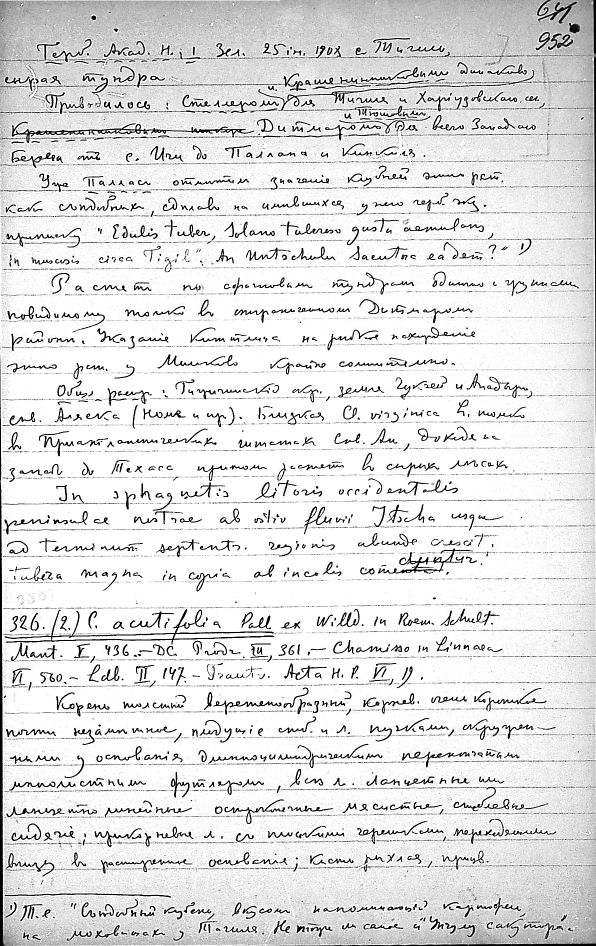 641
952
Герб. Акад. Н.; 1 Зел. 25 іюн. 1908 с Тигиль,
сырая тундра
и Крашенинниковымъ
Приводилось: Стеллеромъ для Тигиля и Харіузовскаго
и Тюшовымъ
Дитмаромъ для всего Западнаго
берега отъ с. Ичи до Паллана и Кинкиля.
Уже Палласъ отмѣтилъ значеніе клубней этого раст.
какъ съѣдобныхъ, сдѣлавъ на имѣвшихся у него герб. экз.
приписку "Edulis tuber, Solano tuberoso gustu aemulans,
in muscosis circa Tigil". An Untschulu Sacutor. eadem?" ¹)
Растетъ по сфагновымъ тундрамъ одиноко и группами
повидимому только въ ограниченномъ Дитмаромъ
районѣ. Указаніе Киттлица на рѣдкое нахожденіе
этого раст. у Милково крайне сомнительно.
Общ. распр.: Гижигинскій окр., земля Чукчей и Анадырь,
сѣв. Аляска (Номе и пр.). Близкая Cl. virginica L. только
въ Приатлантическихъ штатахъ Сѣв. Ам., доходя на
западъ до Техаса, причемъ растетъ въ сырыхъ лѣсахъ.
In sphagnetis litoris occidentalis
peninsulae nostrae ab ostio fluvii Itscha usque
ad terminum septentr. regionis abunde crescit.
Tubera magna in copia ab incolis comeduntur.
326. (2.) C. acutifolia Pall ex Willd. in Roem. Schult.
Mant. V, 436.- DC. Prodr. III, 361.- Chamisso in Linnaea
VI, 560.- Ldb. II, 147.- Trautv. Acta H. P. VI, 19.
Корень толстый веретенообразный, корнев. очень короткое
почти незамѣтное, несущіе стеб. и л. пучками, окружен-
ными у основанія длинноцилиндрическимъ перепончатымъ
многолистнымъ футляромъ, всѣ л. ланцетные или
ланцетно линейные остроконечные мясистые, стеблевые
сидячіе; прикорневые л. съ плоскими черешками, переходящими
внизу въ расширенное основаніе; кисть рыхлая, прицв.
¹) Т.е. "Съѣдобный клубень, вкусомъ напоминающій картофель,
на моховинахъ у Тигиля. Не тоже ли самое и